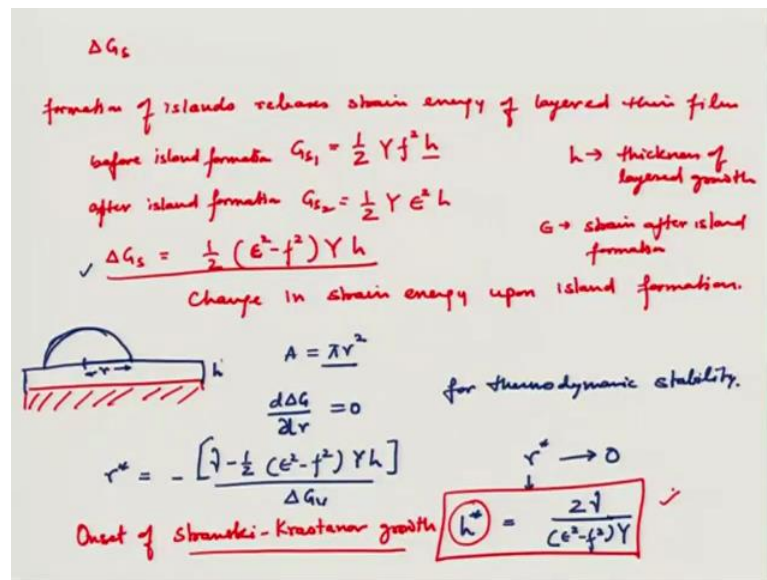 ΔGs
formation of islands releases strain energy of layered thin film
before island formation Gs₁ = 1/2 Y f² h
h → thickness of layered growth
after island formation Gs₂ = 1/2 Y ϵ² h
ϵ → strain after island formation
✓ ΔGs = 1/2 (ϵ²-f²) Y h
Change in strain energy upon island formation.
r
h
A = πr²
dΔG/dr = 0
for thermodynamic stability.
r* = - [γ - 1/2 (ϵ²-f²) Y h] / ΔGv
r* → 0
↓
Onset of Stranski-Krastanov growth
h* = 2γ / (ϵ²-f²) Y ✓